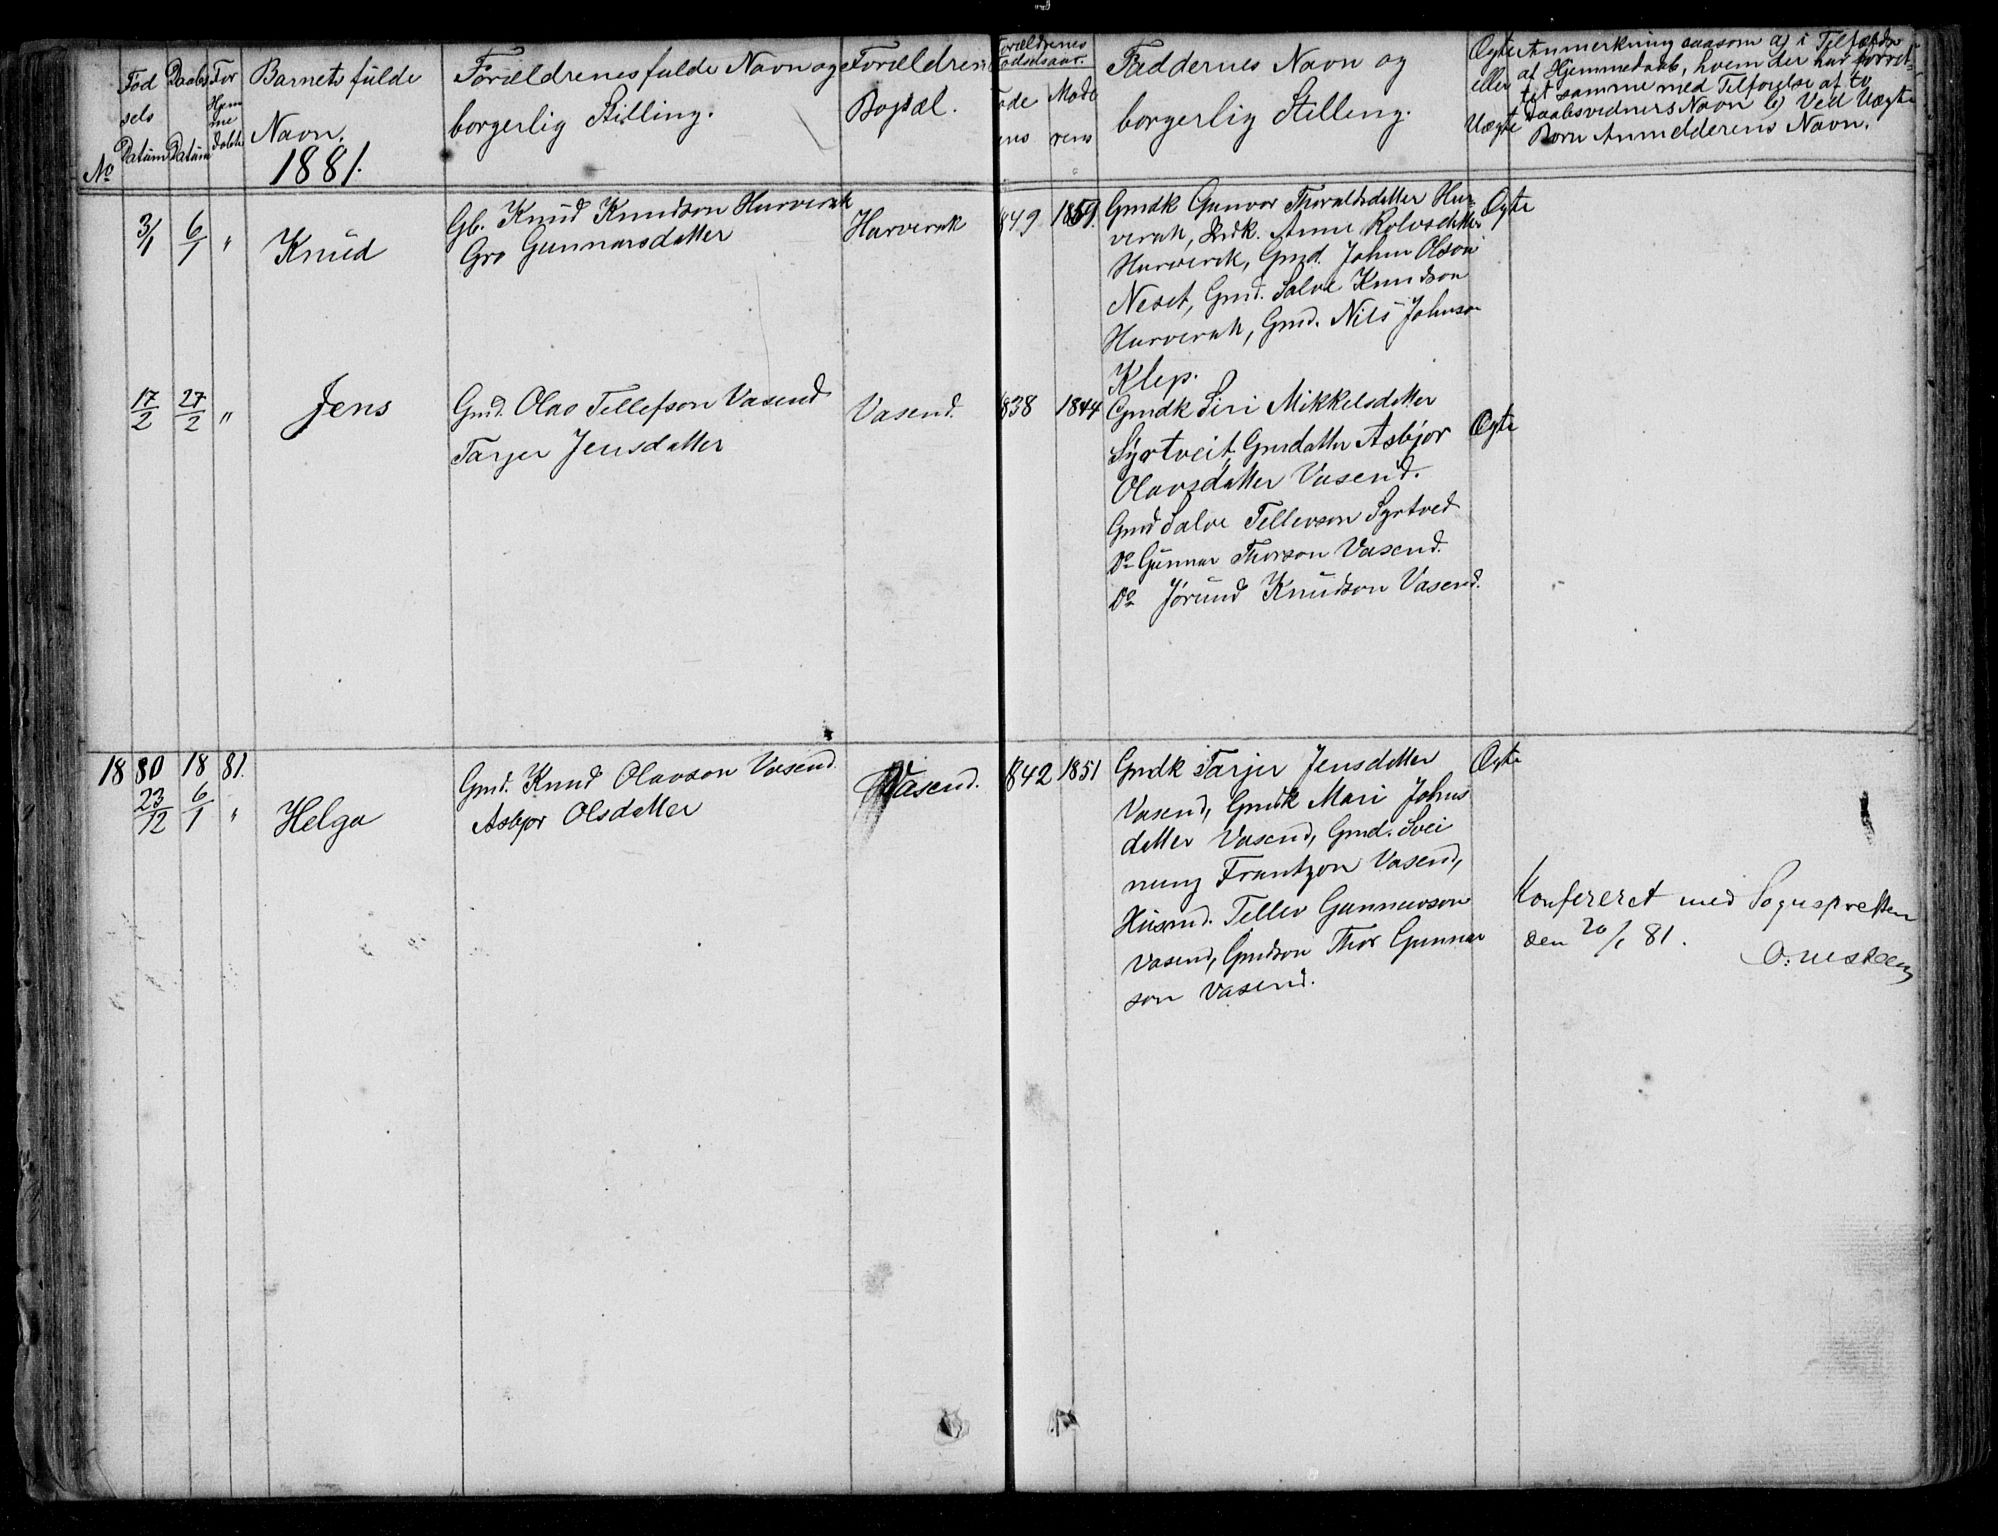 No
Fød
sels
Datum
Daabs
Datum
For
Hjem
me
dobte
Barnets fulde
Navn.
1881.
Forældrenes fulde Navn og
borgerlig Stilling.
Forældren
Bopæl.
Forældrenes
Fødselsaar.
ens
Mode
rens
Faddernes Navn og
borgerlig Stilling.
Ægte
eller
Uægte
Anmerkning saasom a) i Tilfælde
af Hjemmedaab, hvem der har forret-
tet samme med Tilføielse af to
Daabsvidners Navn b) Ved Uægte
Børn Anmelderens Navn.
3/1 6/1 "
Knud
Gb. Knud Knudson Hurverak
Gro Gunnarsdatter
Harverak
849 1859.
Gmdk Gunvor Thoraldsdatter Hur-
verak, Anne Rolvsdatter
Hurverak, Gmd. John Olson
Neset, Gmd. Salve Knudson
Hurverak, Gmd. Nils Johnson
Klep.
Ægte
17/2 27/2 "
Jens
Gmd. Olav Tellefson Vasend
Tarjer Jensdatter
Vasend.
838 1844
Gmdk Siri Mikkelsdatter
Syrtveit, Gmdatter Asbjor
Olavsdatter Vasend.
Gmd Salve Tellevson Syrtved
Do Gunnar Thorson Vasend.
Do Jørund Knudson Vasend.
Ægte
18 80 18 81.
23/12 6/1 "
Helga
Gmd. Knud Olavson Vasend.
Asbjor Olsdatter
Vasend.
842 1851
Gmdk Tarjer Jensdatter
Vasend, Gmdk Mari Johns
datter Vasend, Gmd. Svei
nung Frantzon Vasend,
Husmd. Tellev Gunnarson
Vasend, Gmdson Thor Gunnar
son Vasend.
Ægte
Konfereret med Sognepresten
den 20/1 81.